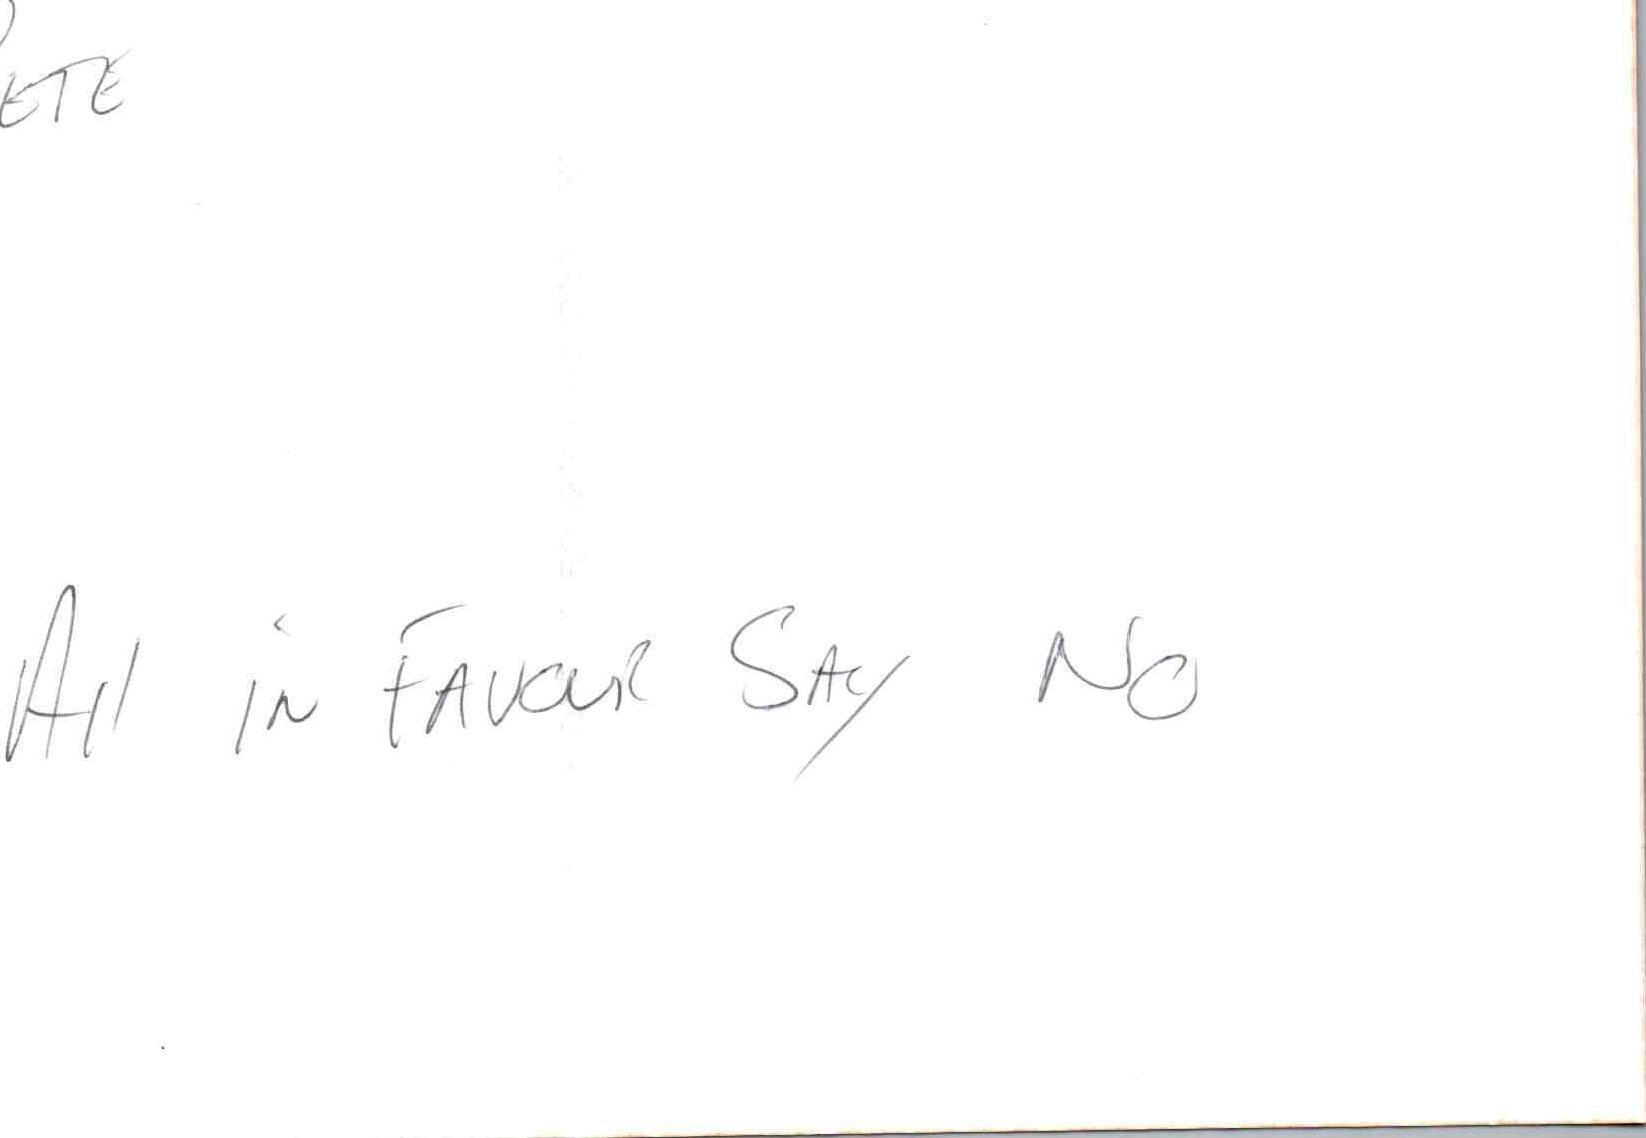 PETE
All in FAVOUR SAY NO